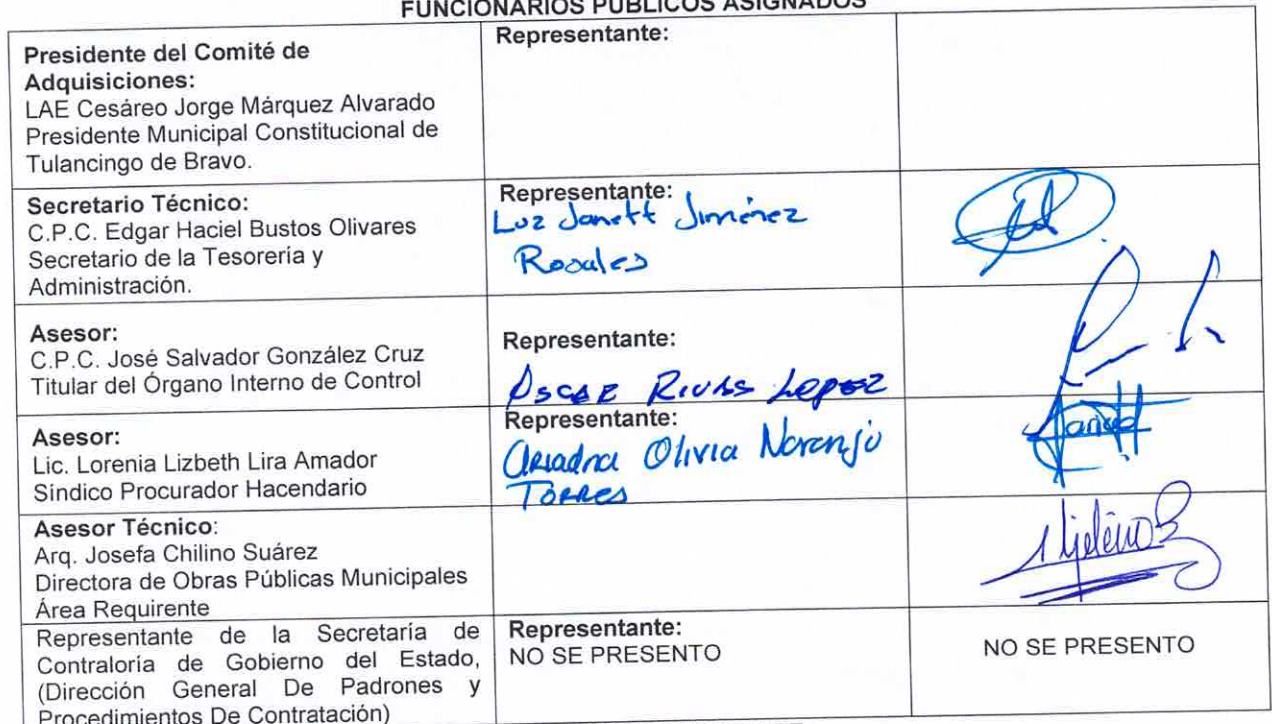 FUNCIONARIOS PÚBLICOS ASIGNADOS
Presidente del Comité de
Adquisiciones:
LAE Cesáreo Jorge Márquez Alvarado
Presidente Municipal Constitucional de
Tulancingo de Bravo.
Representante:
Secretario Técnico:
C.P.C. Edgar Haciel Bustos Olivares
Secretario de la Tesorería y
Administración.
Representante:
Luz Janett Jiménez
Rosales
Asesor:
C.P.C. José Salvador González Cruz
Titular del Órgano Interno de Control
Representante:
OSCAR RIVAS LOPEZ
Asesor:
Lic. Lorenia Lizbeth Lira Amador
Síndico Procurador Hacendario
Representante:
Ariadna Olivia Naranjo
Torres
Asesor Técnico:
Arq. Josefa Chilino Suárez
Directora de Obras Públicas Municipales
Área Requirente
Representante de la Secretaría de
Contraloría de Gobierno del Estado,
(Dirección General De Padrones y
Procedimientos De Contratación)
Representante:
NO SE PRESENTO
NO SE PRESENTO